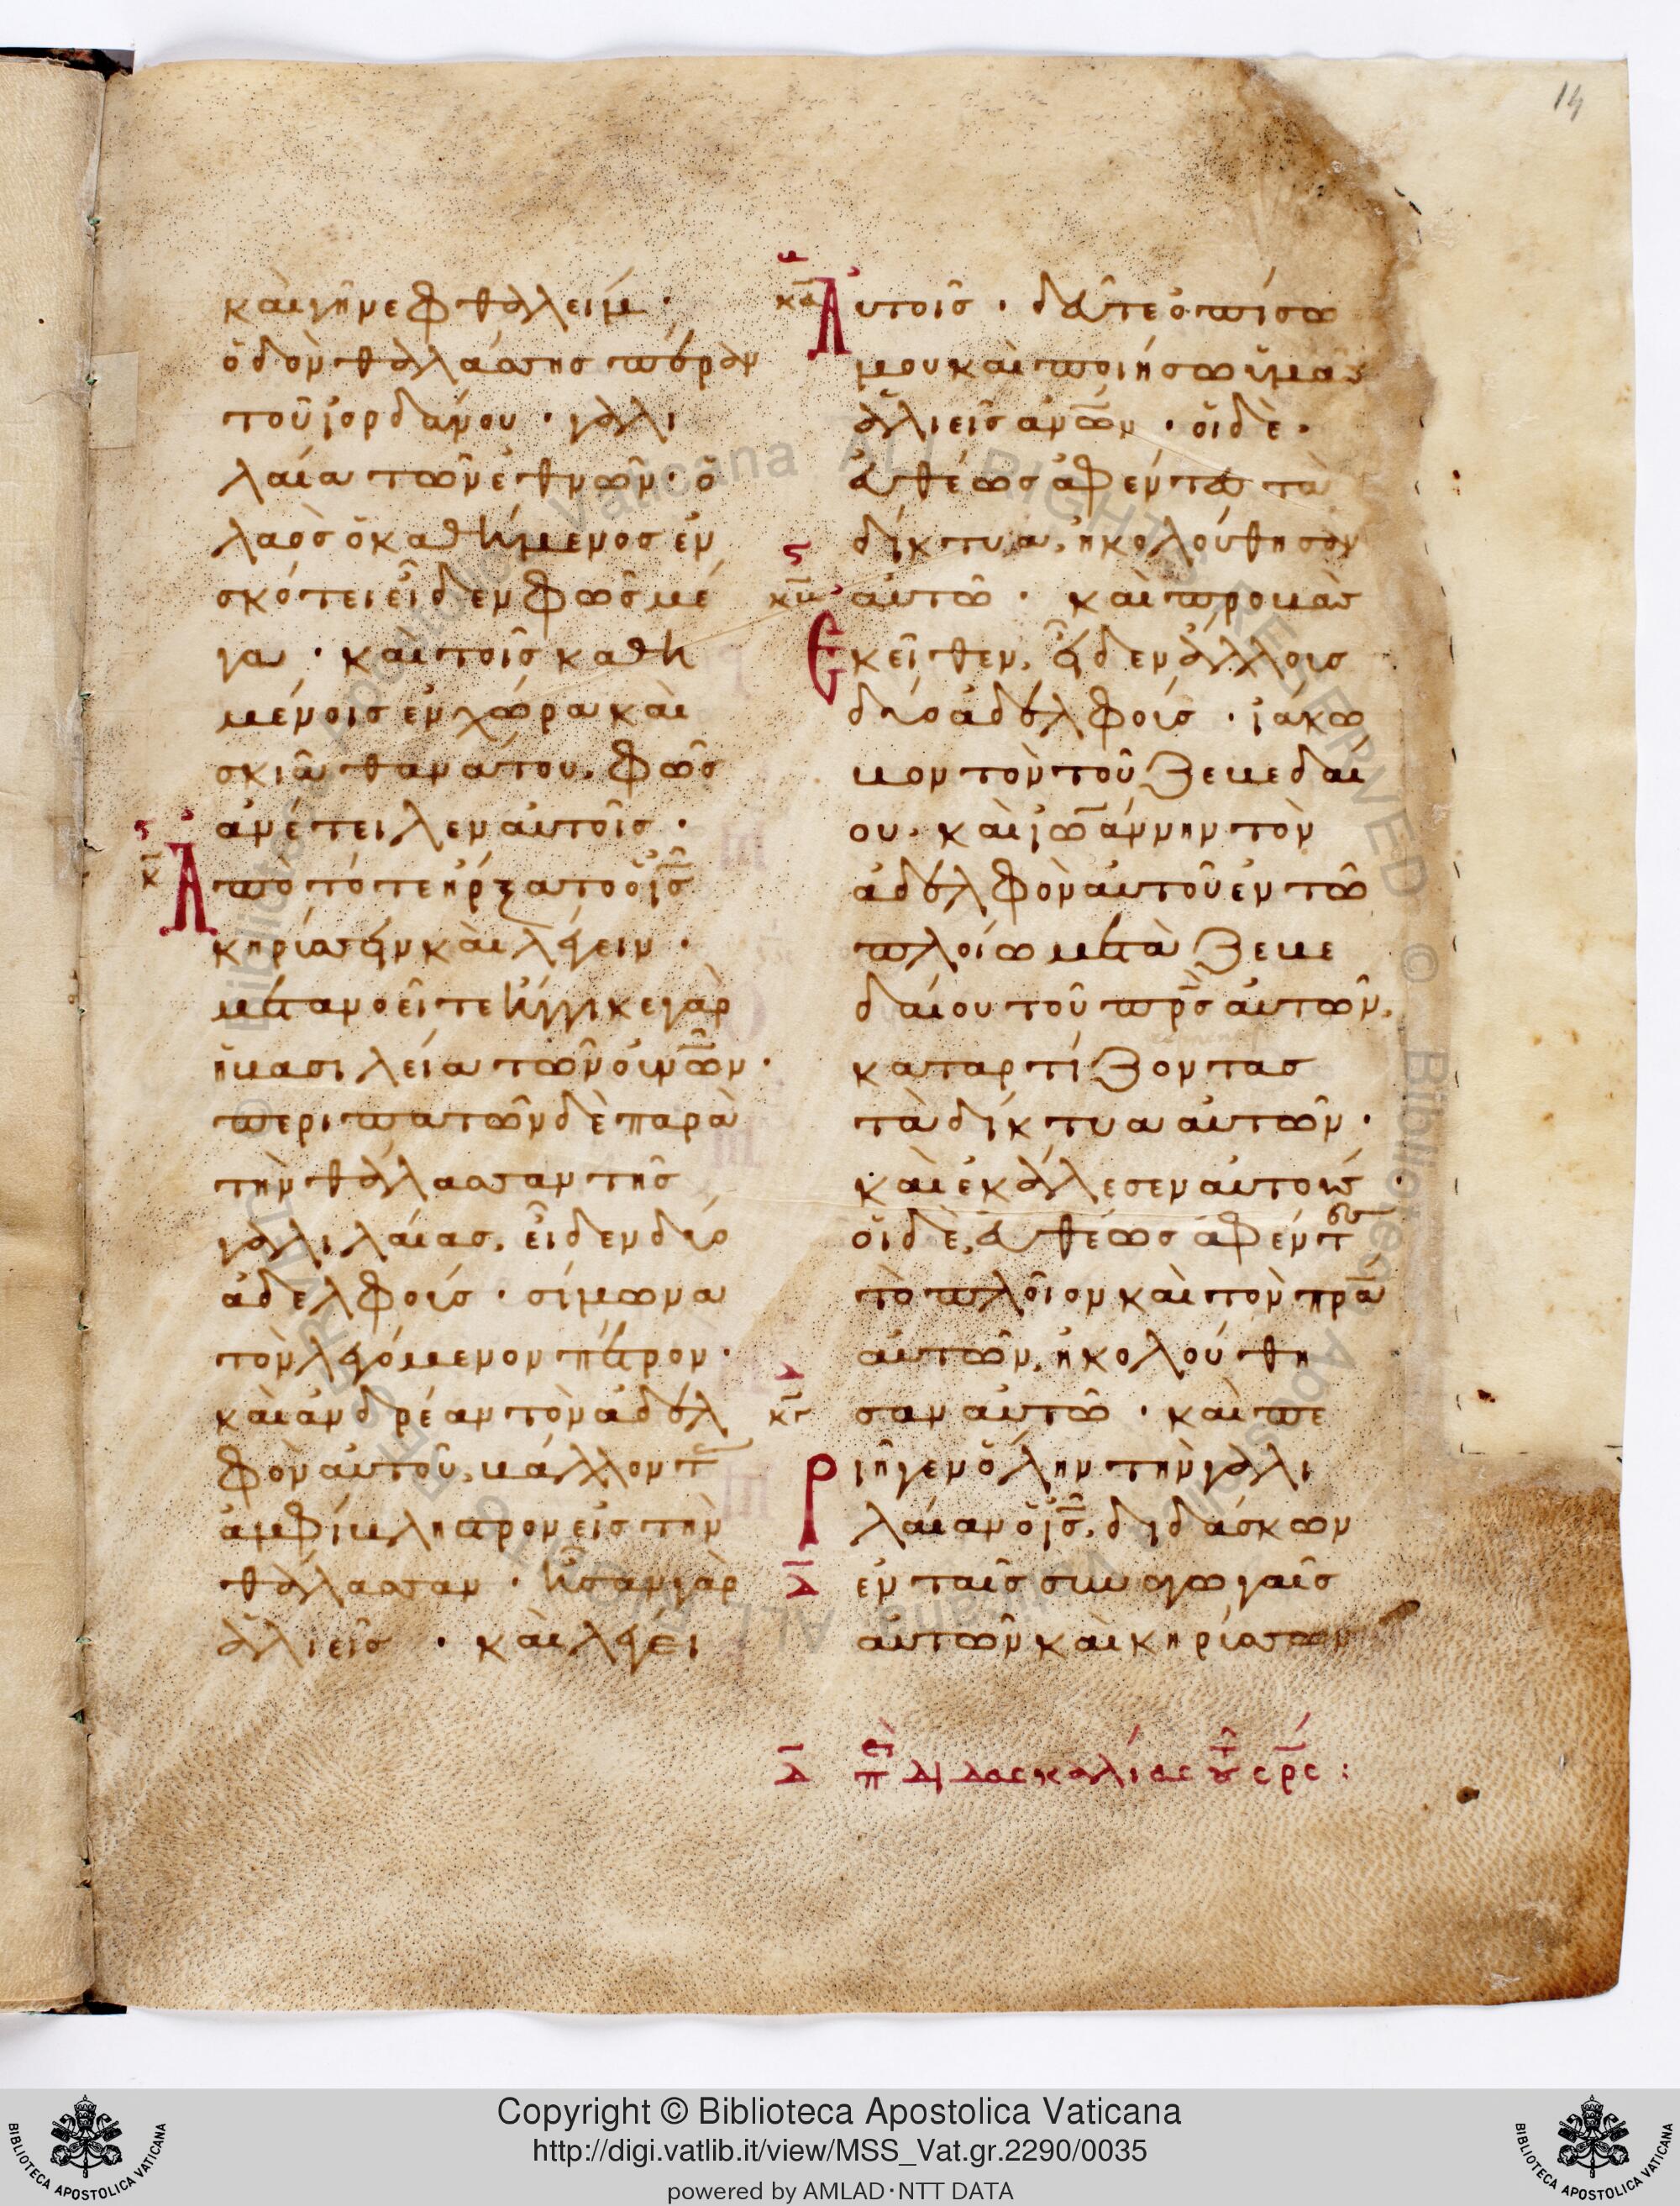 14
καὶ γῆ νεφθαλείμ ·
ὁδὸν θαλάσσης πέραν
τοῦ ἰορδάνου · γαλι
λαία τῶν ἐθνῶν · ὁ
λαὸς ὁ καθήμενος ἐν
σκότει εἶδεν φῶς μέ
γα · καὶ τοῖς καθη
μένοις ἐν χώρα καὶ
σκιᾶ θανάτου, φῶς
ἀνέτειλεν αὐτοῖς ·
ς
κβ
Ἀπὸ τότε ἤρξατο ὁ ἰς̅
κηρύσσειν καὶ λέγειν ·
μετανοεῖτε ἤγγικε γὰρ
ἡ βασιλεία τῶν οὐνῶν ·
περιπατῶν δὲ παρὰ
τὴν θάλασσαν τῆς
γαλιλαίας, εἶδεν δύο
ἀδελφούς · σίμωνα
τὸν λεγόμενον πέτρον ·
καὶ ἀνδρέαν τὸν ἀδελ
φὸν αὐτοῦ, βάλλοντ
ἀμφίβληστρον εἰς τὴν
θάλασσαν · ἦσαν γὰρ
ἁλιεῖς · καὶ λέγει
κα
Αὐτοῖς · δεῦτε ὀπίσω
μου καὶ ποιήσω ὑμᾶς
ἁλιεῖς ἀνῶν · οἱ δὲ ·
εὐθέως ἀφέντες τὰ
δίκτυα, ἠκολούθησαν
ς
κβ
αὐτῶ · καὶ προβὰς
Ἐκεῖθεν, εἶδεν ἄλλους
δύο ἀδελφούς · ἰάκω
βον τὸν τοῦ ζεβεδαί
ου · καὶ ἰωάννην τὸν
ἀδελφὸν αὐτοῦ ἐν τῶ
πλοίω μετὰ ζεβε
δαίου τοῦ πρς̅ αὐτῶν,
καταρτίζοντας
τὰ δίκτυα αὐτῶν ·
καὶ ἐκάλεσεν αὐτούς ·
οἱ δὲ, εὐθέως ἀφέντες
τὸ πλοῖον καὶ τὸν πρα̅
αὐτῶν, ἠκολούθη
κγ
σαν αὐτῶ · καὶ πε
Ριῆγεν ὅλην τὴν γαλι
λαίαν ὁ ἰς̅, διδάσκων
Δ
ἐν ταῖς συναγωγαῖς
αὐτῶν καὶ κηρύσσων
Δ πρὶ διδασκαλίας τοῦ σρς :
Copyright © Biblioteca Apostolica Vaticana
http://digi.vatlib.it/view/MSS_Vat.gr.2290/0035
powered by AMLAD·NTT DATA
BIBLIOTECA APOSTOLICA VATICANA
BIBLIOTECA APOSTOLICA VATICANA